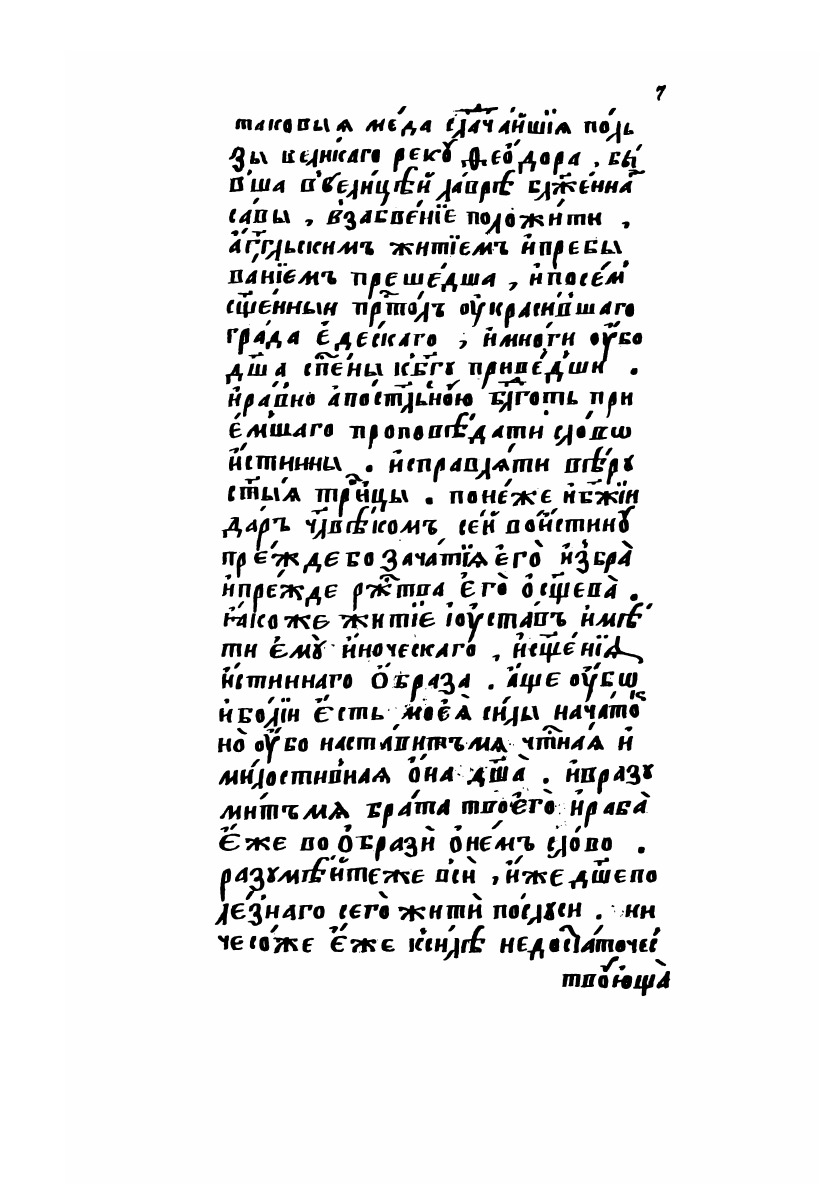 7
таковыѧ ме́да сла́ча́йшїѧ по́ль
зы вели́каго рекꙋ̀ ѳео́дора . бы́
вша в̾вели́цѣй ла́врѣ бл҃же́нна
са́вы , в̾забве́нїе положи́ти ,
а́гг҃льскимъ житїе́мъ и҆пребы
ва́нїемъ преше́дша , и҆посе́м
сщ҃е́нныи пр҃то́лъ оу҆краси́вшаго
гра́да є҆де́скаго , и҆мно́ги оу҆́бо
дш҃а сп҃е́ны къ бг҃ꙋ приве́дши .
и҆ра́вно а҆постⷪ҇льною бл҃го́ть при
е́мшаго проповѣ́дати сло́вѡ
и҆́стинны . и҆справлѧ́ти вѣ́рꙋ
ст҃ы́ѧ трⷪ҇йцы . поне́же и҆бж҃їи
да́ръ чл҃вѣ́комъ се́й вои́стинꙋ
пре́жде бо зача́тїѧ є҆го̀ и҆збра̀
и҆пре́жде рж҃тва є҆го̀ о҆сщ҃ева̀ .
ꙗ҆́коже житїѐ і҆оу҆ста́въ и҆мѣ́
ти є҆мꙋ̀ и҆́ноческаго , и҆сщ҃е́нїѧ
и҆́стиннаго о҆́браза . а҆́ще оу҆́бѡ
и҆бо́лїи є҆́сть мое́ѧ си́лы нача́токъ
но̀ оу҆́бо наста́витъмѧ чт҃наѧ и҆
ми́лостивнаѧ о҆́на дш҃а̀ . и҆вразꙋ
ми́тъмѧ бра́та твоего̀ и҆раба̀
є҆́же во о҆́бразѝ о҆не́мъ сло́во .
разꙋмѣ́йтеже всѝ , и҆́же дш҃епо
ле́знаго сего̀ житѝ послꙋси . ни
чесо́же є҆́же к̾си́лѣ недоста́точес
твꙋ́юща̀